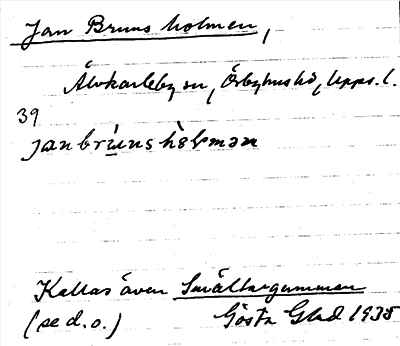 Jan Bruns holmen,
Älvkarleby sn, Örbyhus hd, Upps. l.
39
janbrùnshòlmən
Kallas även Smältargumman
(se d.o.) Gösta Glad 1935